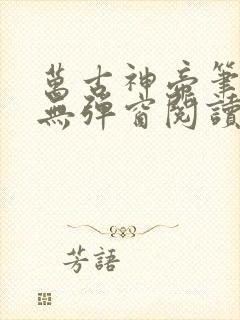 萬古神帝筆
無彈窗閱讀
芳語